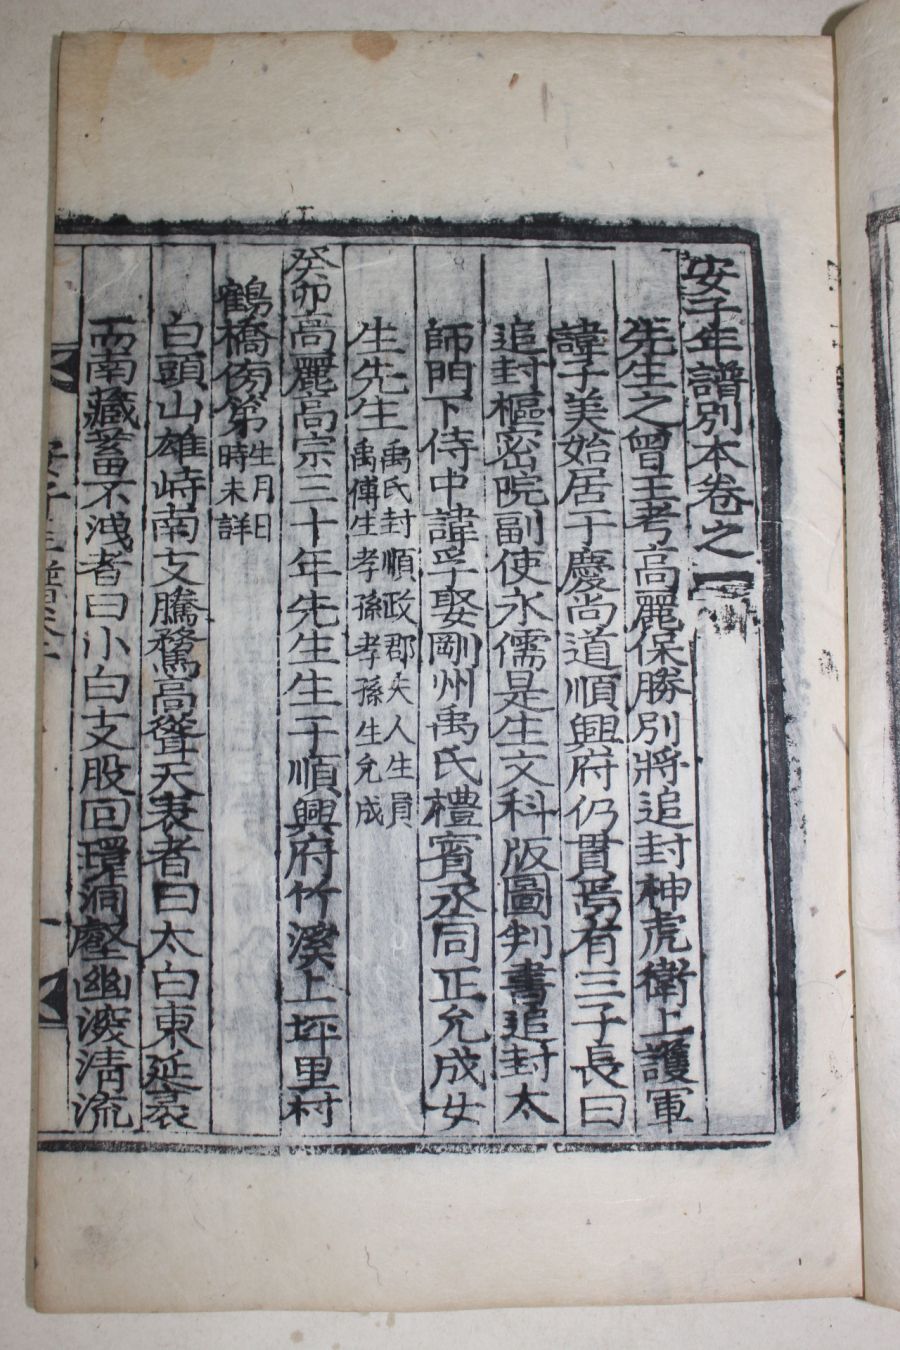 安子年譜別本卷之一
先生之曾王考高麗保勝別將追封神虎衛上護軍
諱子美始居于慶尚道順興府仍貫焉有三子長曰
追封樞密院副使永儒是生文科版圖判書追封太
師門下侍中諱孚娶剛州禹氏禮賓丞同正允成女
生先生禹氏封順政郡夫人生員
禹傅生孝孫孝孫生允成
癸卯高麗高宗三十年先生生于順興府竹溪上坪里村
鶴橋傍第生月日
時未詳
白頭山雄峙南支騰騖高聳天表者曰太白東延袤
而南藏蓄不洩者曰小白支股回環洞壑幽深清流